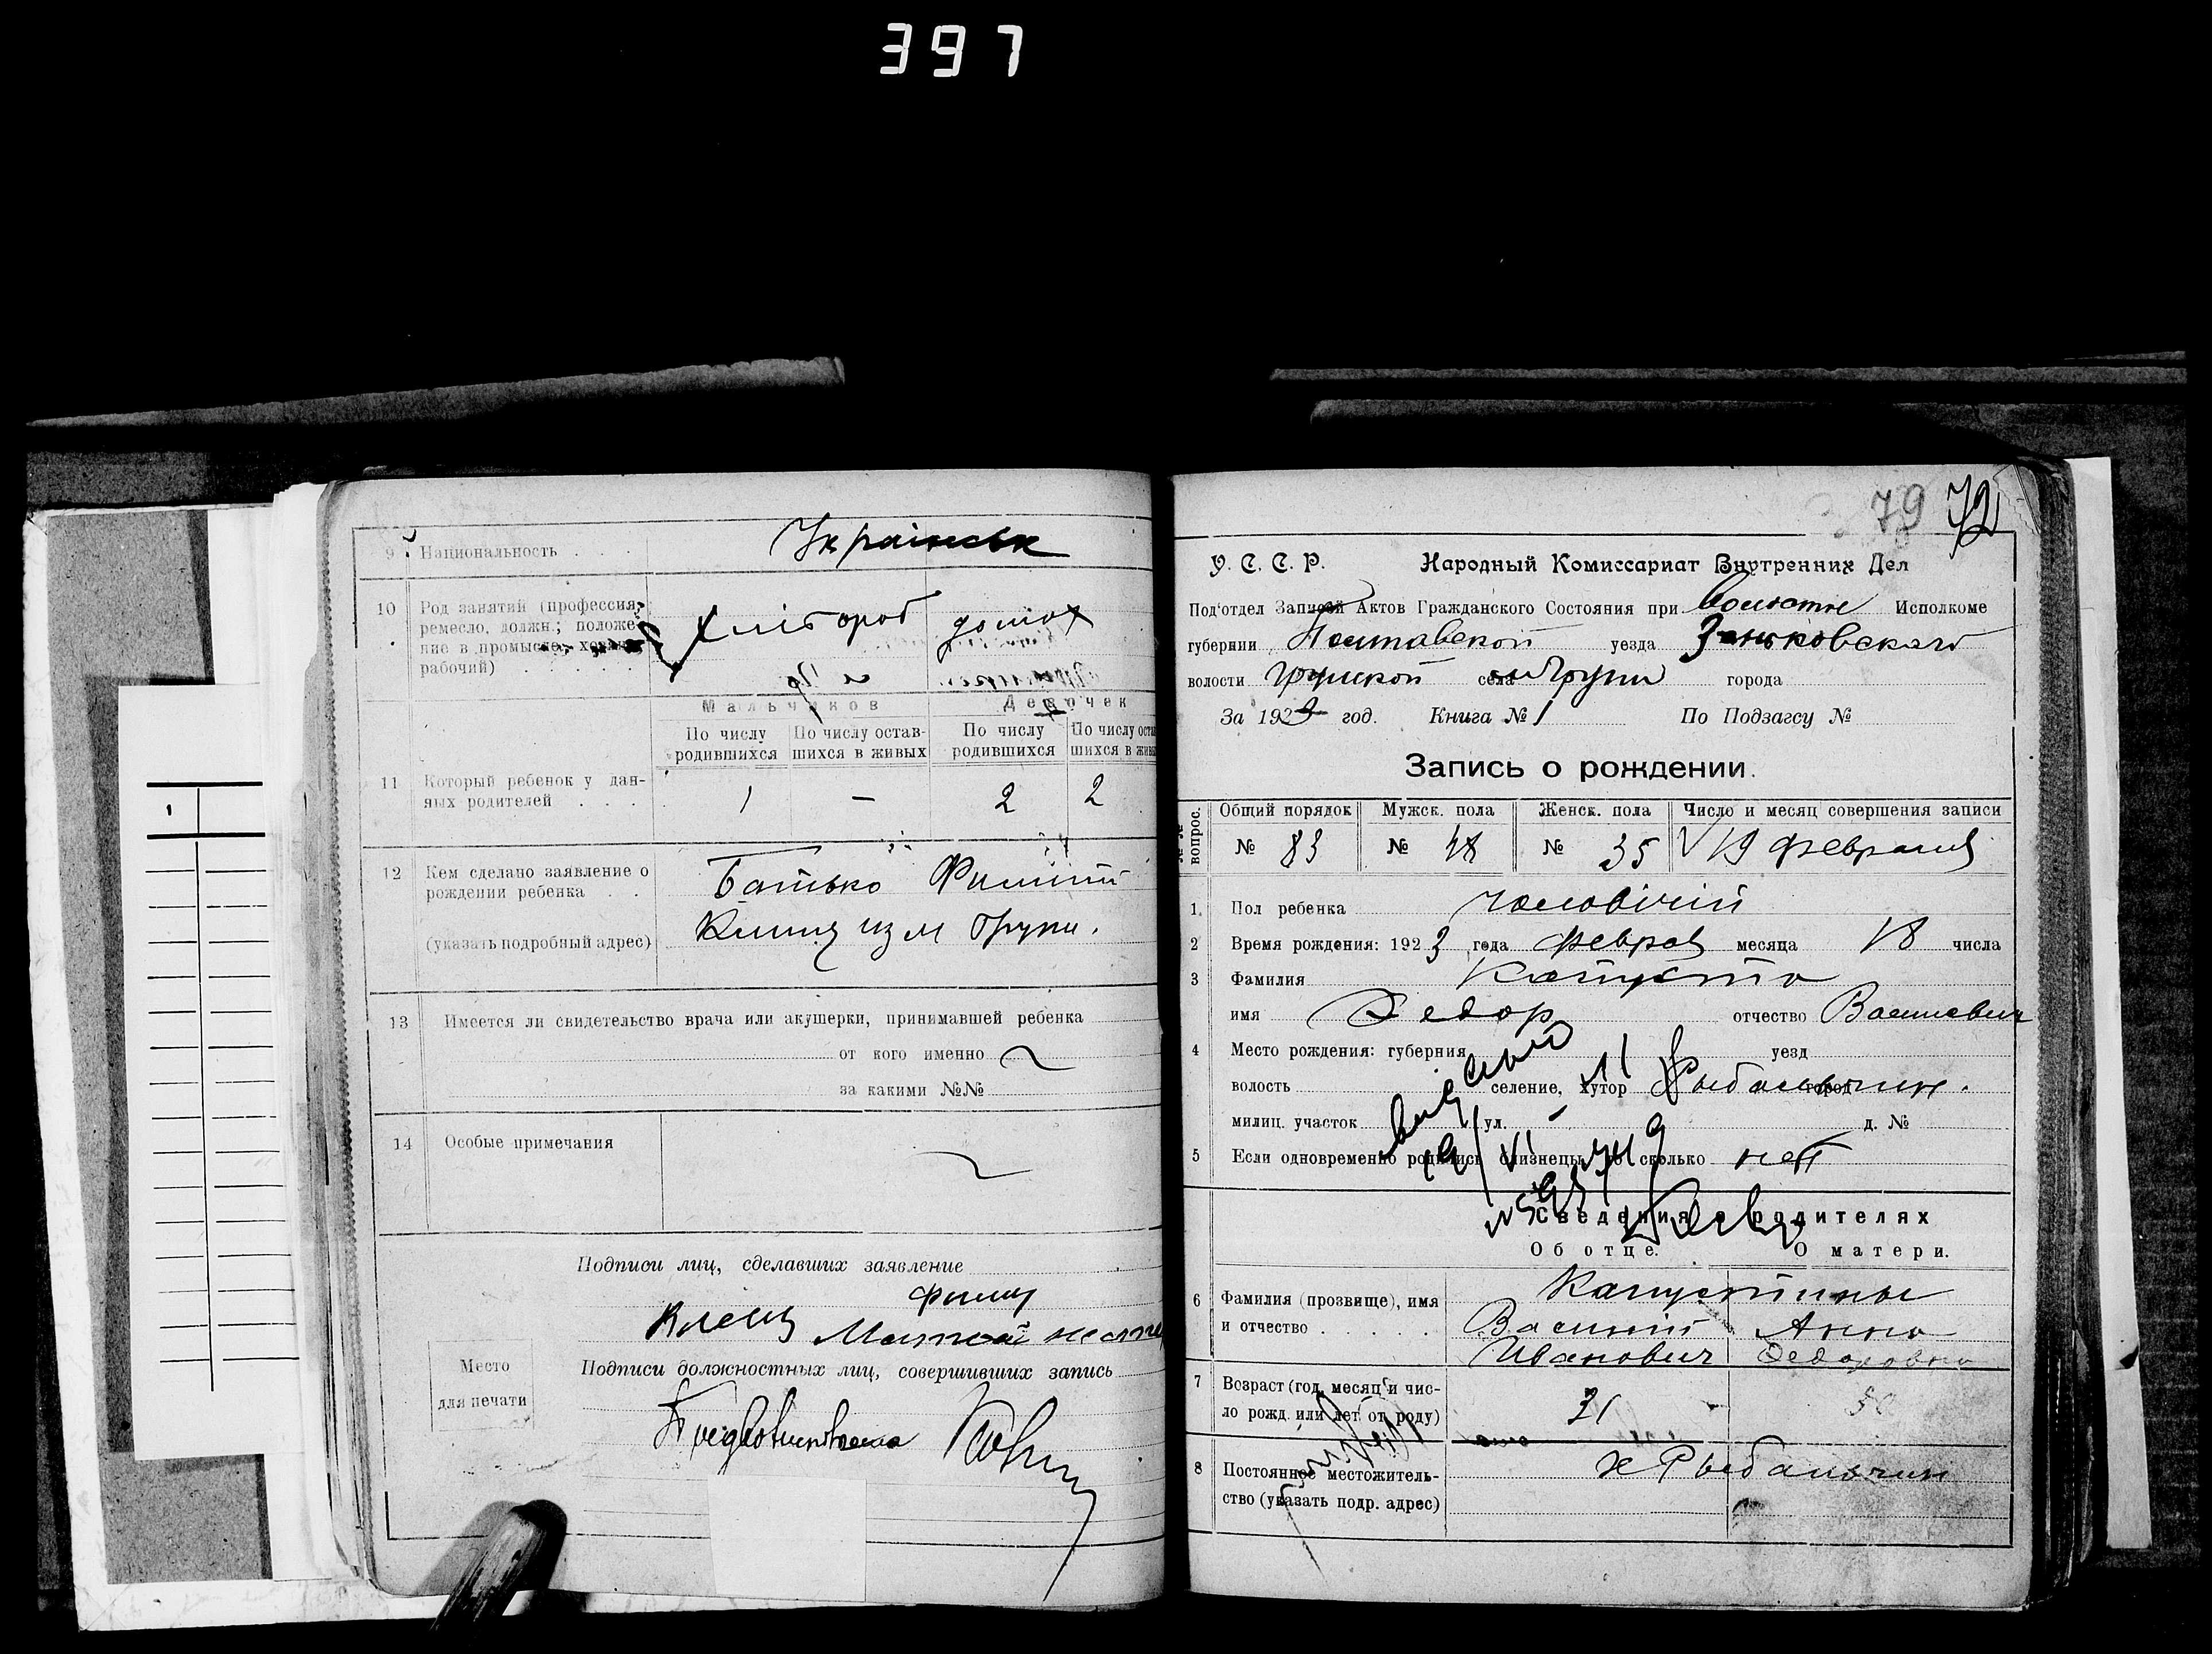 397
9 Национальность . . . Українськ
10 Род занятий (профессия, ремесло, должн.; положе-
ние в промысле: хозяин,
рабочий) . . . . . Хлібороб домох
Мальчиков Девочек
По числу По числу остав- По числу По числу оста
родившихся шихся в живых родившихся шихся в живы
11 Который ребенок у дан-
ных родителей . . . 1 — 2 2
12 Кем сделано заявление о
рождении ребенка . . Батько Филипп
(указать подробный адрес) Клищ из м Груни.
13 Имеется ли свидетельство врача или акушерки, принимавшей ребенка
от кого именно
за какими №№
14 Особые примечания
Подписи лиц, сделавших заявление
Филип
Клещ
Место
для печати
Подписи должностных лиц, совершивших запись
79 72
У. С. С. Р. Народный Комиссариат Внутренних Дел
Под'отдел Записей Актов Гражданского Состояния при Волостне Исполкоме
губернии Полтавской уезда Зеньковскаго
волости Грунской села Груни города
За 1923 год. Книга № 1 По Подзагсу №
Запись о рождении.
№№ вопрос. Общий порядок Мужск. пола Женск. пола Число и месяц совершения записи
№ 83 № 48 № 35 19 февраля
1 Пол ребенка чоловічій
2 Время рождения: 1923 года феврал месяца 18 числа
3 Фамилия Капуста
имя Федор отчество Василевич
4 Место рождения: губерния уезд
волость селение, хутор Рыбальчин. город
милиц. участок ул. — д. №
5 Если одновременно родились близнецы, то сколько нет
Сведения о родителях
Об отце. О матери.
6 Фамилия (прозвище), имя Капустины
и отчество . . . . Василий Анна
Иванович Федоровна
7 Возраст (год, месяц и чис-
ло рожд. или лет от роду) 31
8 Постоянное местожитель- х Рыбальчин
ство (указать подр. адрес)